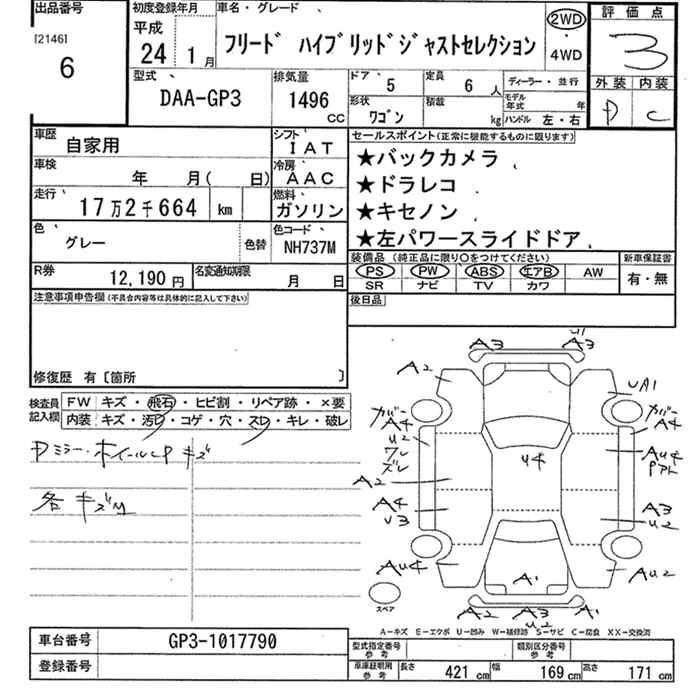 出品番号
[2146]
6
初度登録年月
平成
24 1月
車名・グレード
フリード ハイブリッドジャストセレクション
2WD
・
4WD
評価点
3
外装 内装
D C
型式
DAA-GP3
排気量
1496 CC
ドア 5
定員 6人
形状 ワゴン
積載 kg
ディーラー・並行
モデル年式 年
ハンドル 左・右
車歴 自家用
シフト IAT
車検 年 月( 日)
冷房 AAC
走行 17万2千664 km
燃料 ガソリン
色 グレー
色替
色コード NH737M
R券 12,190円
名変通知期限 月 日
セールスポイント(正常に機能するものに限ります)
★バックカメラ
★ドラレコ
★キセノン
★左パワースライドドア
装備品 (純正品に限り○をつけてください)
PS PW ABS エアB AW
SR ナビ TV カワ
新車保証書
有・無
後日品
注意事項申告欄(不具合内容等は具体的に記入して下さい)
修復歴 有〔箇所 〕
検査員記入欄
FW キズ・飛石・ヒビ割・リペア跡・×要
内装 キズ・汚レ・コゲ・穴・スレ・キレ・破レ
Dミラー・ホイールCP キズ
各キズM
A3 U1 A3
A2
UA1
カバー A4
U2
ワレ
ズレ
カバー A4
AU4
Pアト
U4
A2
A4
U3
A3
U2
AU4
A1
AU2
スペア
A2 A3 A1
U2
A-キズ E-エクボ U-凹み W-補修跡 S-サビ C-腐食 XX-交換済
車台番号 GP3-1017790
登録番号
型式指定番号 参考
類別区分番号 参考
車庫証明用 参考
長さ 421cm
幅 169cm
高さ 171cm